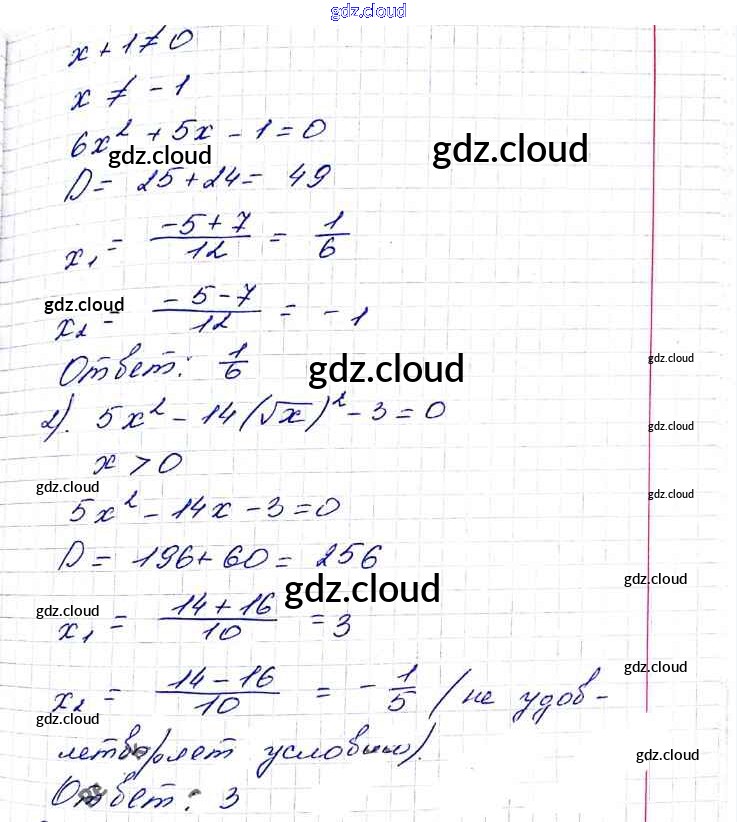 gdz.cloud
x + 1 ≠ 0
x ≠ - 1
6x² + 5x - 1 = 0
gdz.cloud gdz.cloud
D = 25 + 24 = 49
x₁ = (-5+7)/12 = 1/6
gdz.cloud
x₂ = (-5-7)/12 = - 1
gdz.cloud
Ответ: 1/6 gdz.cloud
2). 5x² - 14(√x)² - 3 = 0
gdz.cloud
x > 0
gdz.cloud gdz.cloud
5x² - 14x - 3 = 0
D = 196 + 60 = 256
gdz.cloud gdz.cloud
gdz.cloud
x₁ = (14+16)/10 = 3
gdz.cloud
x₂ = (14-16)/10 = - 1/5 (не удов-
gdz.cloud
летворяет условию).
gdz.cloud
Ответ: 3